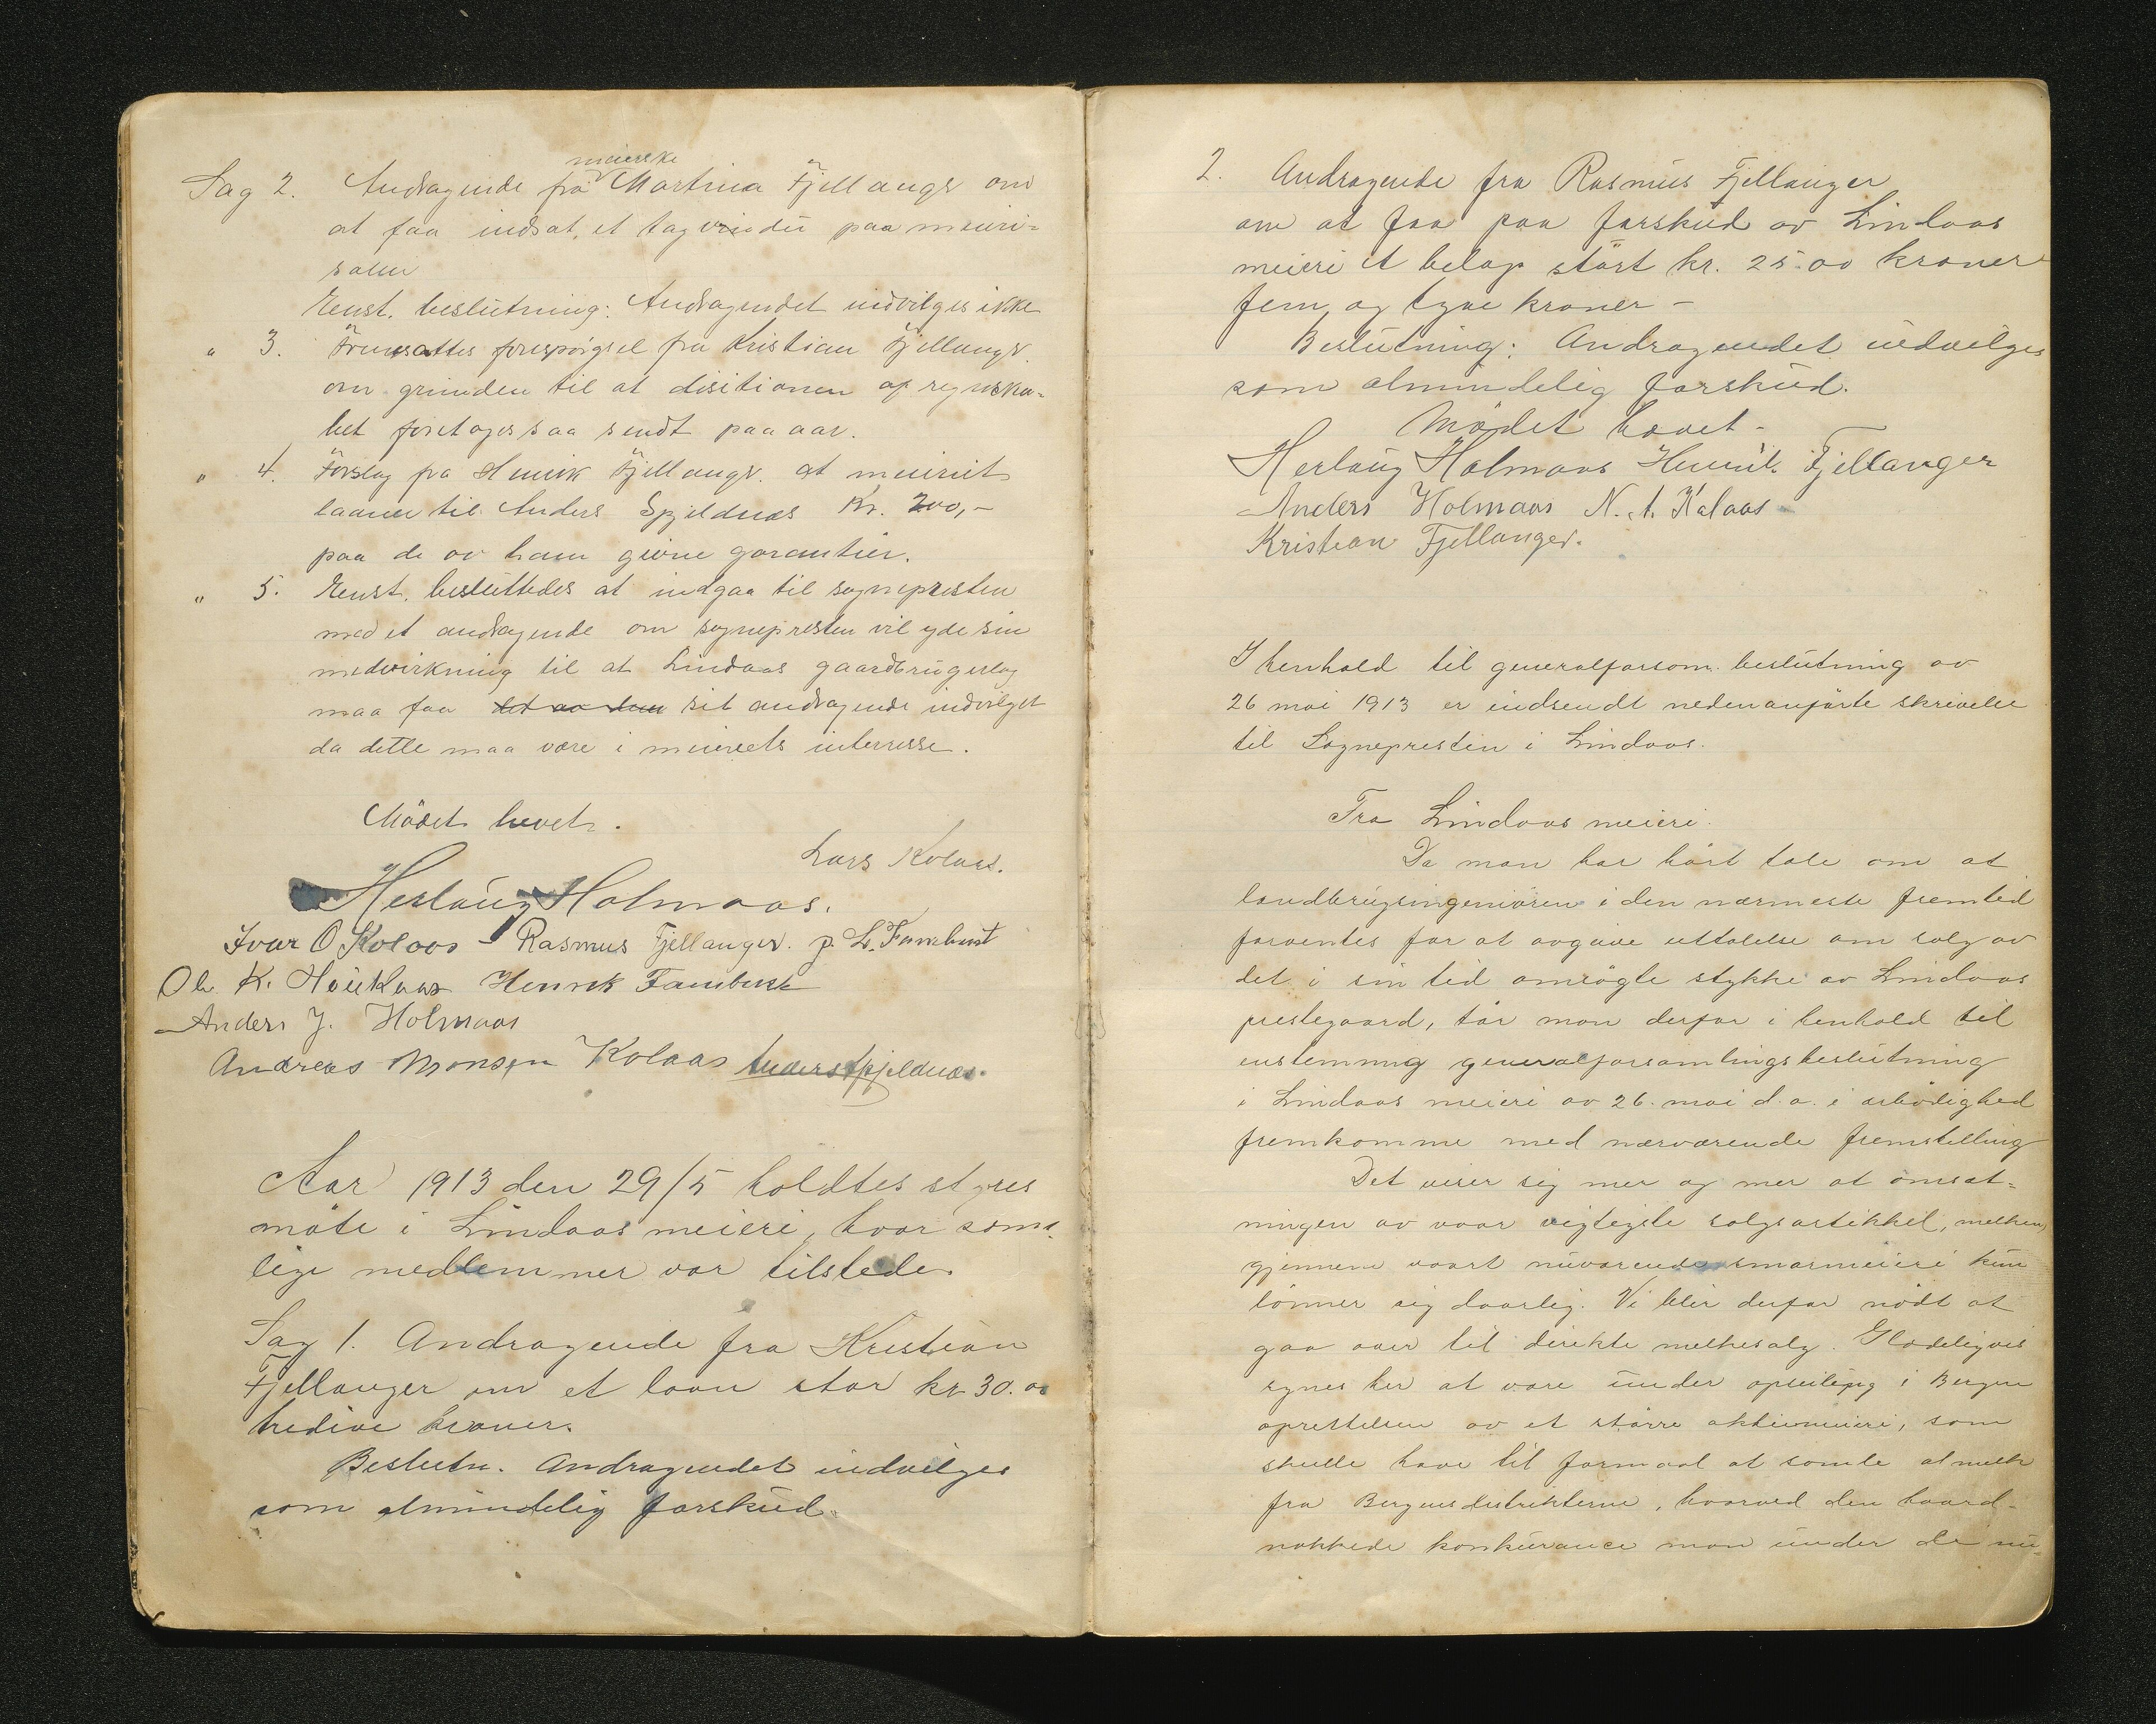 meierske
Sag 2. Andragende fra Martina Fjellangr om
at faa indsat et tagvindu paa meieri=
salen
Enst. beslutning: Andragendet indvilges ikke
" 3. Fremsattes forespörgsel fra Kristian Fjellangr.
om grunden til at disitionen af regnska=
bet foretages saa sendt paa aar.
" 4. Forslag fra Henrik Fjellangr. at meieriet
laaner til Anders Spjeldnæs Kr. 200,-
paa de av ham givne garantier.
" 5. Enst. besluttedes at indgaa til sognepresten
med et andragende om sognepresten vil yde sin
medvirkning til at Lindaas gaardbrugerlag
maa faa det av den sit andragende indvilget
da dette maa være i meieriets interresse.
Mödet hevet.
Lars Kolaas.
Herlaug Holmaas.
Ivar O Kolaas - Rasmus Fjellanger. p. L. Famebust
Ole K. Höikaas Henrik Famebust
Anders J. Holmaas
Andreas Monsen Kolaas Anders Spjeldnæs.
Aar 1913 den 29/5 holdtes styres
möte i Lindaas meieri, hvor sam=
lige medlemmer var tilstede.
Sag 1. Andragende fra Kristian
Fjellanger om et laan stor kr 30.00
tredive kroner.
Beslutn. Andragendet indvilges
som almindelig forskud.
2. Andragende fra Rasmus Fjellanger
om at faa paa forskud av Lindaas
meieri et belöp stört kr. 25.00 kroner
fem og tyve kroner -
Beslutning: Andragendet indvilges
som almindelig forskud.
Mödet hævet -
Herlaug Holmaas Henrik Fjellanger
Anders Holmaas N. A. Kolaas
Kristian Fjellanger.
I henhold til generalforsom. beslutning av
26 mai 1913 er indsendt nedenanförte skrivelse
til Sognepresten i Lindaas.
Fra Lindaas meieri.
Da man har hört tale om at
landbrugsingeniören i den nærmeste fremtid
forventes for at avgive uttalelse om salg av
det i sin tid omsögte stykke av Lindaas
prestegaard, tör man derfor i henhold til
enstemmig generalforsamlingsbeslutning
i Lindaas meieri av 26. mai d.a. i ærbödighed
fremkomme med nærværende fremstilling
Det viser sig mer og mer at omsæt=
ningen av vaar vigtigste salgsartikkel, melken,
gjennem vaart nuværende smörmeieri kun
lönner sig daarlig. Vi blir derfor nödt at
gaa over til direkte melkesalg. Glædeligvis
synes her at være under opseiling i Bergen
oprettelsen av et större aktiemeieri, som
skulle have til formaal at samle al melk
fra Bergensdistrikterne, hvorved den haard=
nakkede konkurance man under de nu=